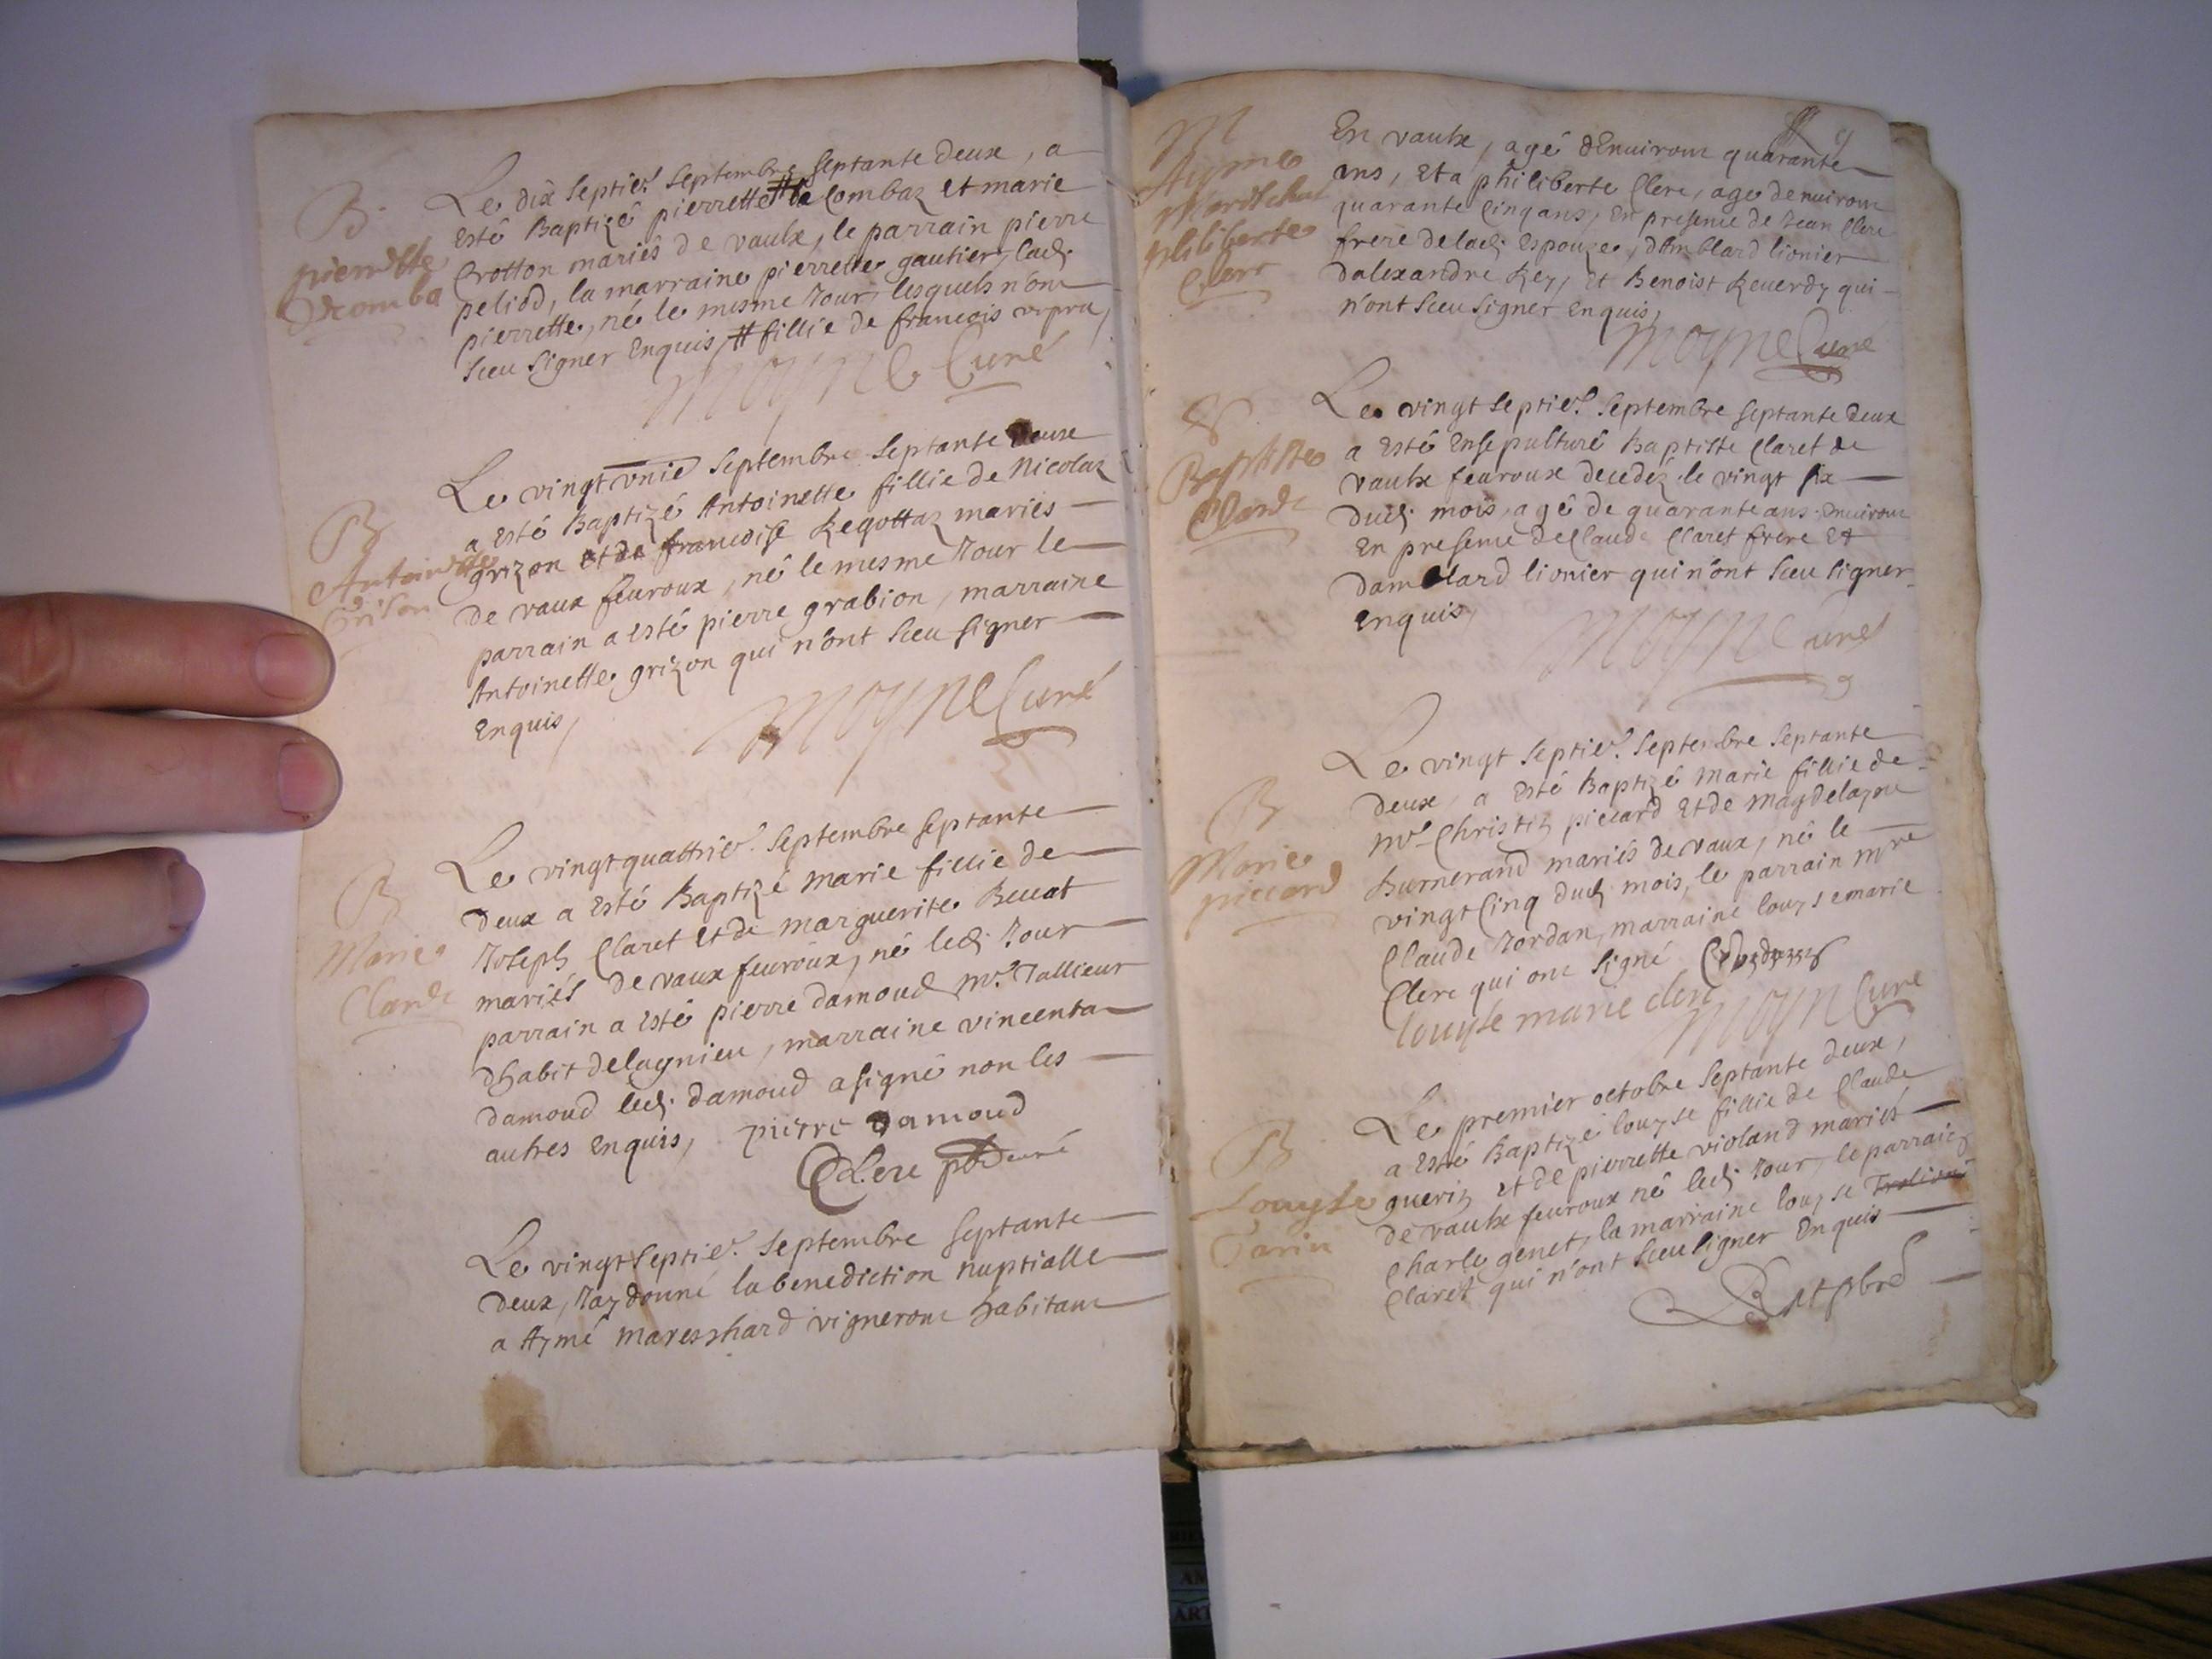 B
pierrette
Decomba
Le dix septie. septembre septante deux, a
esté Baptizé pierrette # de Combaz et marie
Crotton mariés de vaulx, le parrain pierre
peliod, la marraine pierrette gautier, lad.
pierrette, né le mesme Jour, lesquels n'ont
sceu signer Enquis, # fillie de francois
Moyne Curé
B
Antoinette
Grison
Le vingt unie septembre septante deux
a esté Baptizé Antoinette fillie de Nicolaz
grizon et de francoise Regottaz mariés
de vaux feuroux, né le mesme Jour le
parrain a esté pierre grabion, marraine
Antoinette grizon qui n'ont sceu signer
Enquis,
Moyne Curé
B
Marie
Claret
Le vingt quattrie. septembre septante
deux a esté Baptizé marie fillie de
Joseph Claret et de marguerite Beuat
mariés de vaux feuroux, né led. Jour
parrain a esté pierre damoud m.e Tallieur
dhabit delagnieu, marraine vincenta
damoud led. damoud a signé non les
autres enquis, pierre damoud
Clere
Le vingt septie. septembre septante
deux, Jay donné la benediction nuptialle
a Aymé mareschard vigneront habitant
M
Ayme
Marechal
philiberte
Clerc
En vaulx, agé denuiront quarante
ans, et a philiberte Clerc, age denuiront
quarante Cinq ans, en presence de Jean Clerc
frere delad. Espouze, damblard lionier
dalexandre Rey, et Benoist Reuerdy qui
n'ont sceu signer enquis,
Moyne Curé
S
Baptiste
Claret
Le vingt septie. septembre septante deux
a esté Ensepulturé Baptiste Claret de
vaulx feuroux decedéz le vingt six
dud. mois, agé de quarante ans enuiront
en presence de Claude Claret frere et
damblard lionier qui n'ont sceu signer
enquis,
Moyne Curé
B
Marie
piccard
Le vingt septie. septembre septante
deux, a esté Baptizé marie fillie de
m.e Christin piccard et de Magdelayne
Burnerand mariés de vaux, né le
vingt Cinq dud. mois, le parrain m.re
Claude Jordan, marraine louyse marie
Clerc qui ont signé
louyse marie clerc
Moyne Curé
B
Louyse
Le premier octobre septante deux,
a esté Baptizé louyse fillie de Claude
guerin et de pierrette violand mariés
de vaulx feuroux né led. Jour, le parrain
Charle genet, la marraine louyse
Claret qui n'ont sceu signer enquis